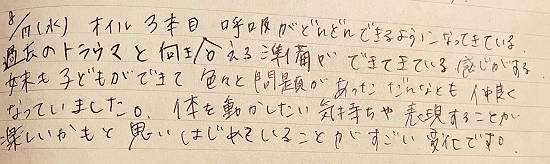 8/17(水) オイル3本目 呼吸がどんどんできるようになってきている。
過去のトラウマと向き合える準備ができてきている感じがする
妹も子どもができて 色々と問題があっただんなとも仲良く
なっていました。体を動かしたい気持ちや表現することが
楽しいかもと思いはじめていることがすごい変化です。